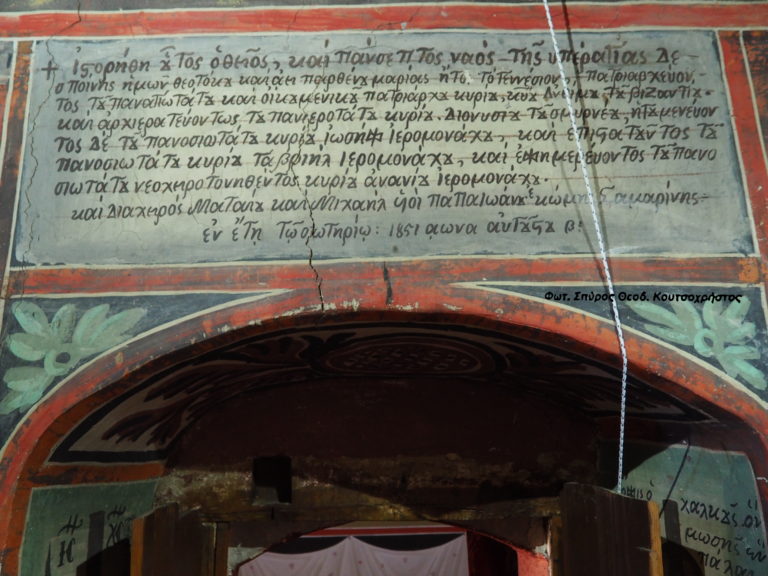 + ἱστορήθη ȣ̓͂τος ὁ θεῖος, καὶ πάνσεπτος ναὸς τῆς ὑπεραγίας Δε-
σποίνης ἡμῶν θεοτόκȣ καὶ ἀεὶ παρθένȣ μαρίας ἤτοι τὸ Γεννέσιον, πατριαρχεύον-
τος τȣ͂ παναγιωτάτȣ καὶ οἰκȣμενικȣ͂ πατριάρχȣ κυρίȣ, κυρ͂ Ἀνθίμȣ, τȣ͂ βιζαντίȣ.
καὶ ἀρχιερατεύοντως τȣ͂ πανιεροτάτȣ κυρίȣ, Διονυσίȣ τȣ͂ σμυρνέȣ, ἡγȣμενέυον
τος Δὲ τȣ͂ πανοσιωτάτȣ κυρίȣ ἰωσὴφ ἱερομονάχȣ, καὶ ἐπιστατȣ͂ντος τȣ͂
πανοσιωτάτȣ κυρίȣ γαβριὴλ ἱερομονάχȣ, καὶ ἐφημερέβοντος τȣ͂ πανο
σιωτάτȣ νεοχηροτονηθέντος κυρίȣ ἀνανίȣ ἱερομονάχȣ.
καὶ Διαχηρὸς Ματαίȣ καὶ Μιχαὴλ ὑιοὶ παπαϊωάνȣ ἐκ κώμης σαμαρίνης-
ἐν ἔτῃ τῷ σωτηρίῳ: 1851
Φωτ. Σπύρος Θεοδ. Κουτσοχρήστος
χαλκȣ͂ς